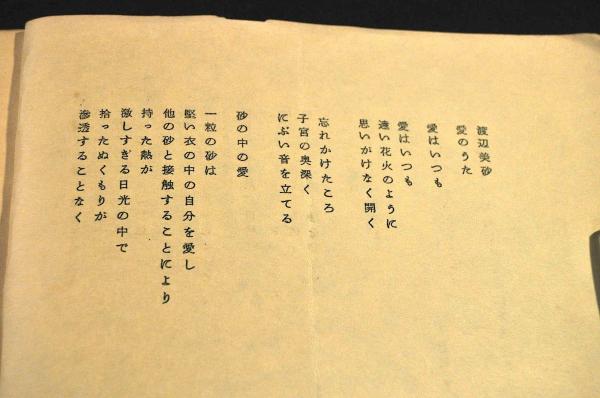 渡辺美砂
愛のうた
愛はいつも
愛はいつも
遠い花火のように
思いがけなく開く
忘れかけたころ
子宮の奥深く
にぶい音を立てる
砂の中の愛
一粒の砂は
堅い衣の中の自分を愛し
他の砂と接触することにより
持った熱が
激しすぎる日光の中で
拾ったぬくもりが
滲透することなく